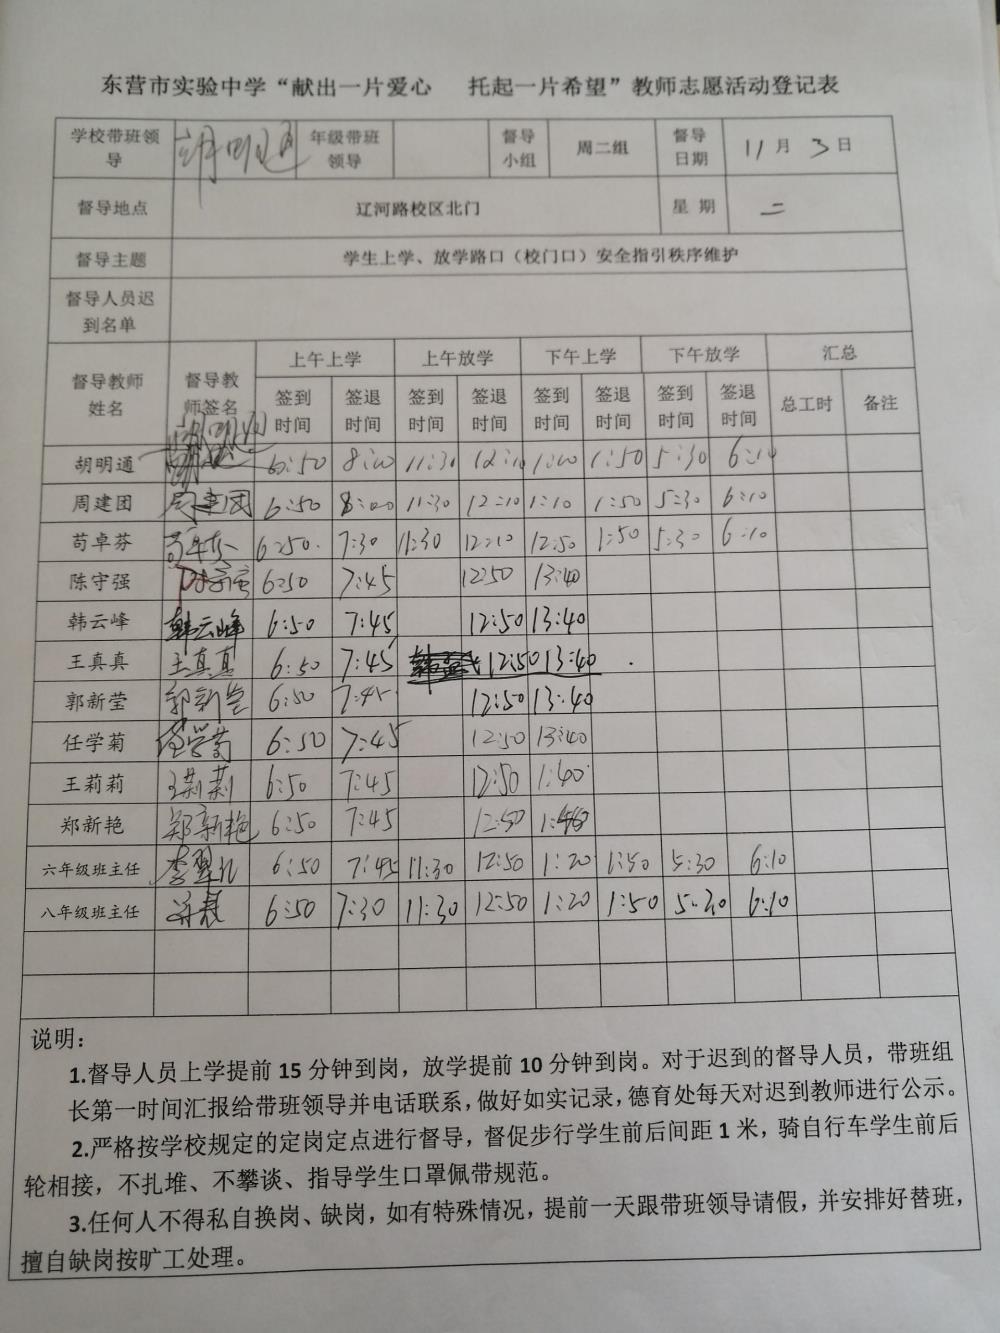 东营市实验中学“献出一片爱心 托起一片希望”教师志愿活动登记表
学校带班领导 胡明通 年级带班领导 督导小组 周二组 督导日期 11月3日
督导地点 辽河路校区北门 星期 二
督导主题 学生上学、放学路口（校门口）安全指引秩序维护
督导人员迟到名单
督导教师姓名 督导教师签名 上午上学 上午放学 下午上学 下午放学 汇总
签到时间 签退时间 签到时间 签退时间 签到时间 签退时间 签到时间 签退时间 总工时 备注
胡明通 胡明通 6:50 8:00 11:30 12:10 1:10 1:50 5:30 6:10
周建团 周建团 6:50 8:00 11:30 12:10 1:10 1:50 5:30 6:10
苟卓芬 苟卓芬 6:50 7:30 11:30 12:10 12:50 1:50 5:30 6:10
陈守强 陈守强 6:50 7:45 12:50 13:40
韩云峰 韩云峰 6:50 7:45 12:50 13:40
王真真 王真真 6:50 7:45 12:50 13:40
郭新莹 郭新莹 6:50 7:45 12:50 13:40
任学菊 任学菊 6:50 7:45 12:50 13:40
王莉莉 王莉莉 6:50 7:45 12:50 1:40
郑新艳 郑新艳 6:50 7:45 12:50 1:40
六年级班主任 6:50 7:45 11:30 12:50 1:20 1:50 5:30 6:10
八年级班主任 6:50 7:30 11:30 12:50 1:20 1:50 5:30 6:10
说明：
1.督导人员上学提前 15 分钟到岗，放学提前 10 分钟到岗。对于迟到的督导人员，带班组
长第一时间汇报给带班领导并电话联系，做好如实记录，德育处每天对迟到教师进行公示。
2.严格按学校规定的定岗定点进行督导，督促步行学生前后间距 1 米，骑自行车学生前后
轮相接，不扎堆、不攀谈、指导学生口罩佩带规范。
3.任何人不得私自换岗、缺岗，如有特殊情况，提前一天跟带班领导请假，并安排好替班，
擅自缺岗按旷工处理。